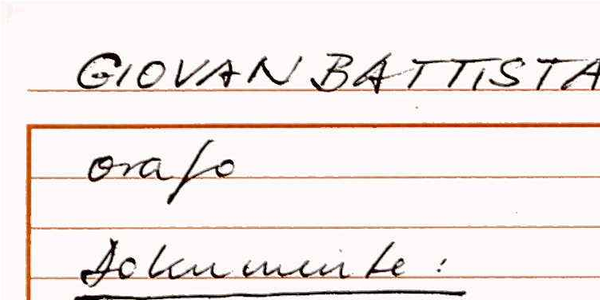 GIOVAN BATTISTA
orafo
Dokumente: